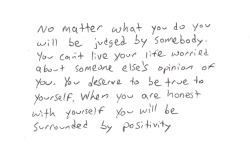 No matter what you do you
will be judged by somebody.
You can't live your life worried
about someone else's opinion of
you. You deserve to be true to
yourself. When you are honest
with yourself you will be
surrounded by positivity